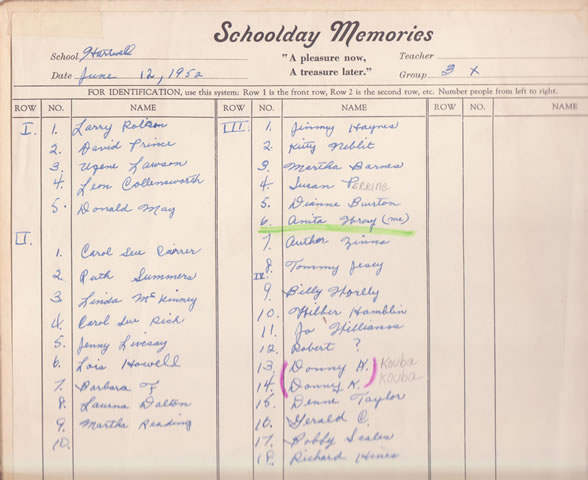 Schoolday Memories
School Hartwell
"A pleasure now,
A treasure later."
Teacher
Date June 12, 1952
Group 3 X
FOR IDENTIFICATION, use this system: Row 1 is the front row, Row 2 is the second row, etc. Number people from left to right.
ROW NO. NAME ROW NO. NAME ROW NO. NAME
I. 1. Larry Robson
2. David Prince
3. Ugene Lawson
4. Leon Collensworth
5. Donald May
II.
1. Carol Sue Carrer
2. Ruth Summers
3. Linda McKinney
4. Carol Sue Rich
5. Jenny Livesay
6. Lois Howell
7. Barbara F.
8. Laurna Dalton
9. Martha Reading
10.
III. 1. Jimmy Haynes
2. Kitty Neblit
3. Martha Barnes
4. Susan PERRINE
5. Dianne Burton
6. Anita Wray (me)
7. Author Zinns
8. Tommy Josey
IV.
9. Billy Worlly
10. Wilber Hamblin
11. Jo Williams
12. Robert ?
13. (Donny H.) Kouba
14. (Donny K.) Kouba
15. Denne Taylor
16. Gerald C.
17. Bobby Scales
18. Richard Hines